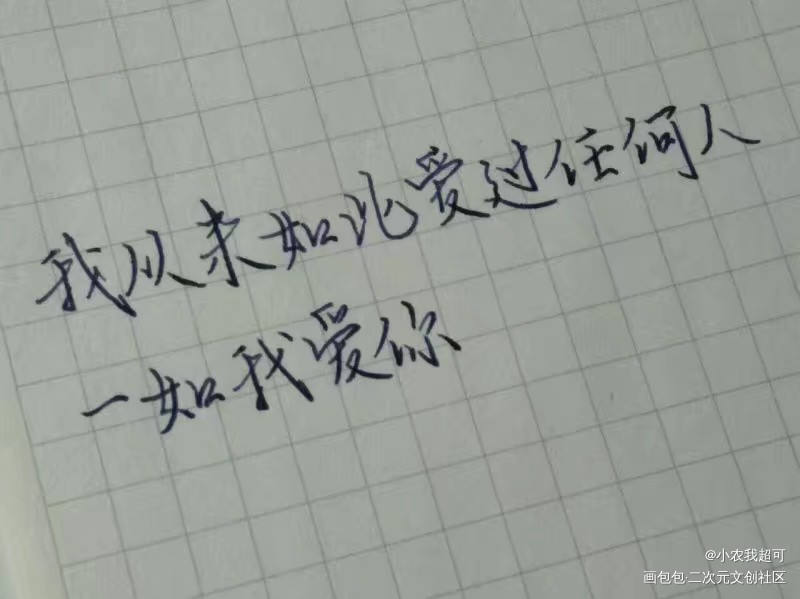 我从未如此爱过任何人
一如我爱你
@小农我超可
画包包·二次元文创社区